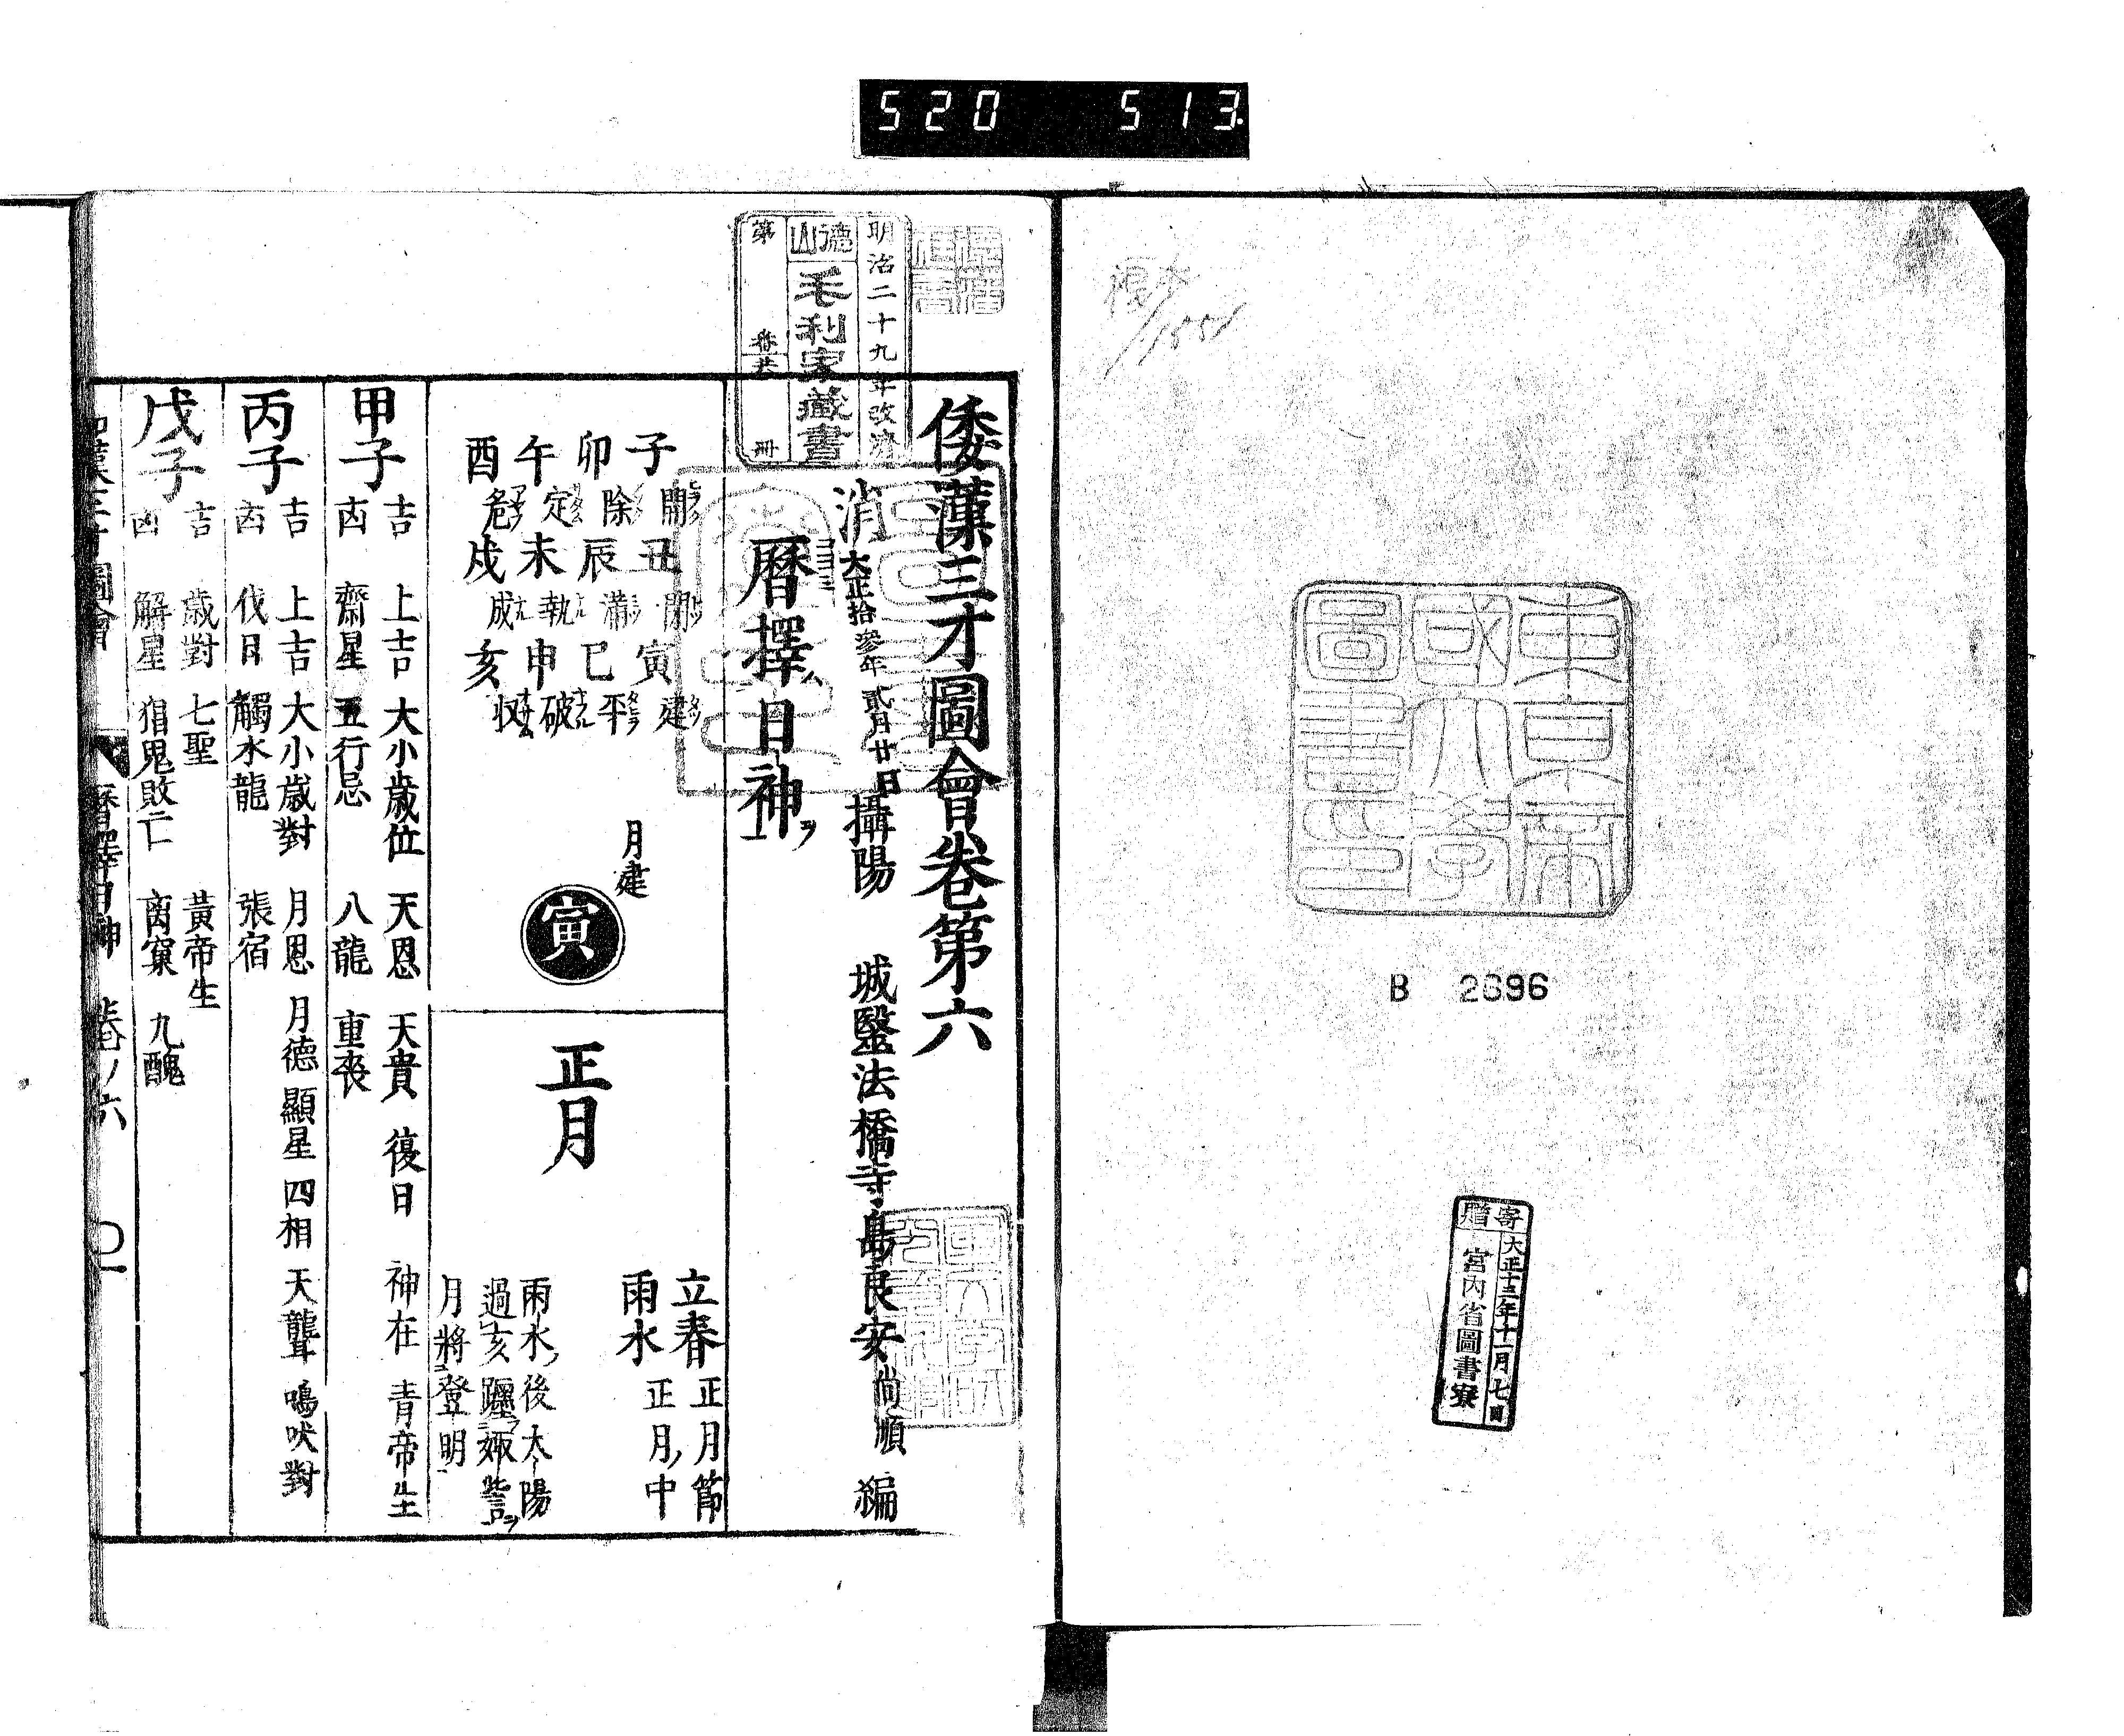 520 513
複本
1552
東京帝
國大學
圖書印
B 2696
寄贈
大正十三年十一月七日
宮內省圖書寮
明治二十九年改濟
德山
毛利家藏書
第
番共
冊
倭漢三才圖會卷第六
攝陽 城醫法橋寺島良安尚順 編
消
大正拾參年貳月廿日
曆擇日神
子開丑閉寅建
卯除辰滿巳平
午定未執申破
酉危戌成亥收
月建
寅
正月
立春正月節
雨水正月中
雨水後太陽
過亥躔娵訾
月將登明
甲子
吉 上吉 大小歲位 天恩 天貴 復日 神在 青帝生
凶 齋星 五行忌 八龍 重喪
丙子
吉 上吉 大小歲對 月恩 月德 顯星 四相 天聾 鳴吠對
凶 伐日 觸水龍 張宿
戊子
吉 歲對 七聖 黃帝生
凶 解星 猖鬼敗亡 离窠 九醜
和漢三才圖會 曆擇日神 卷ノ六